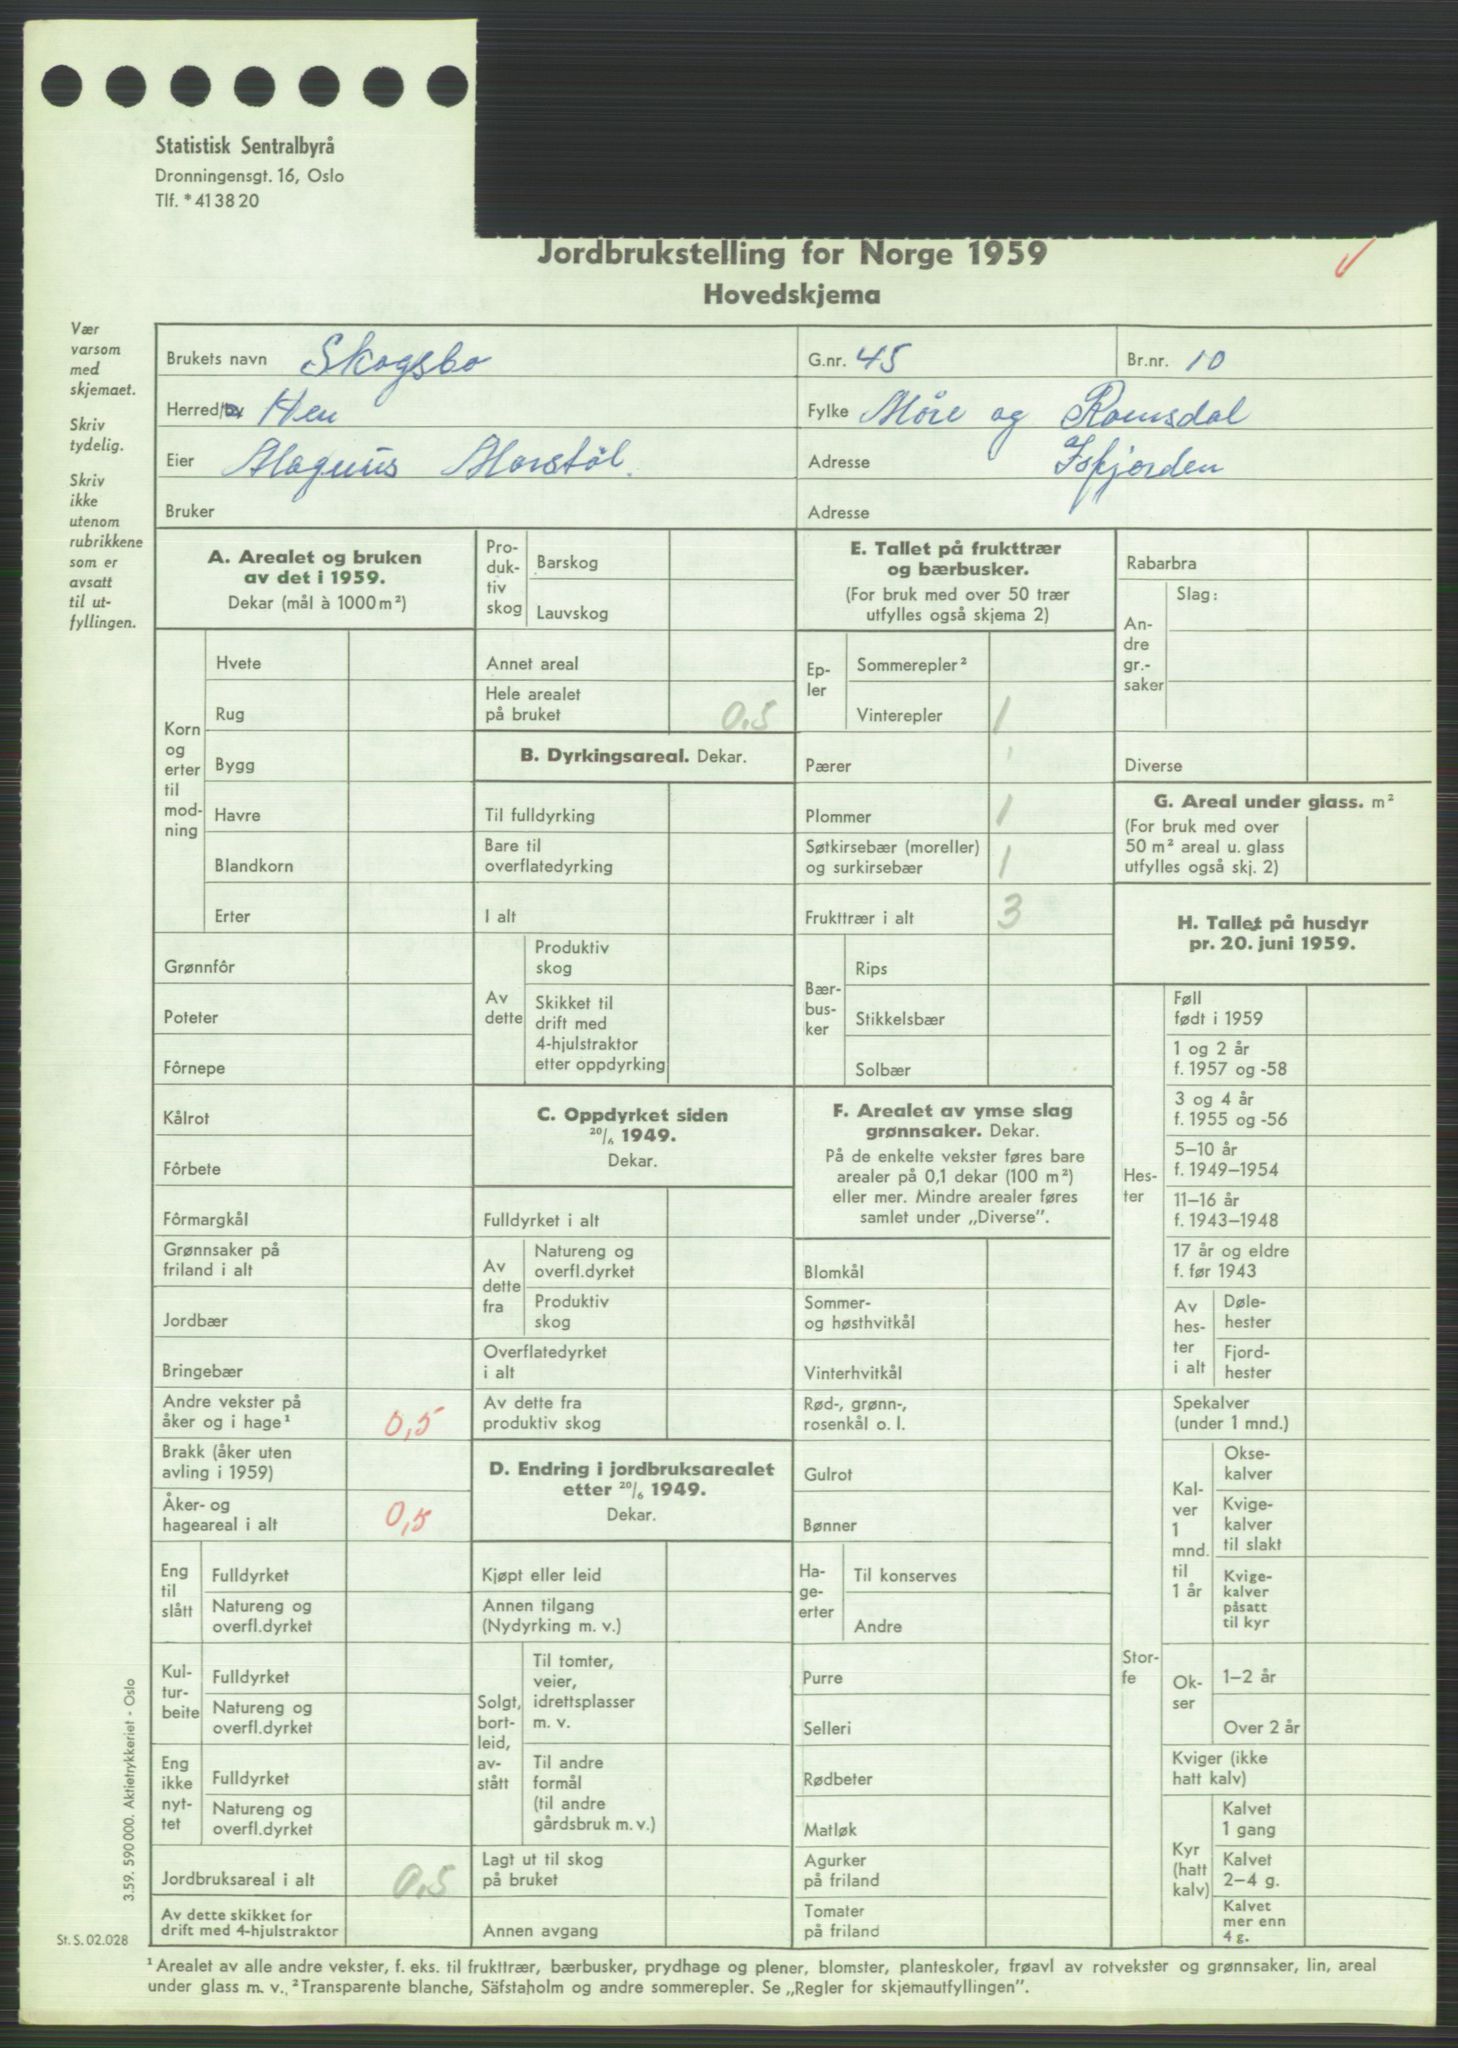 Statistisk Sentralbyrå
Dronningensgt. 16, Oslo
Tlf. * 41 38 20
Jordbrukstelling for Norge 1959
Hovedskjema
Vær
varsom
med
skjemaet.
Skriv
tydelig.
Skriv
ikke
utenom
rubrikkene
som er
avsatt
til ut-
fyllingen.
Brukets navn Skogsbo G.nr. 45 Br.nr. 10
Herred/by Hen Fylke Møre og Romsdal
Eier Magnus Morstøl. Adresse Isfjorden
Bruker Adresse
A. Arealet og bruken
av det i 1959.
Dekar (mål à 1000 m²)
Korn
og
erter
til
mod-
ning
Hvete
Rug
Bygg
Havre
Blandkorn
Erter
Grønnfôr
Poteter
Fôrnepe
Kålrot
Fôrbete
Fôrmargkål
Grønnsaker på
friland i alt
Jordbær
Bringebær
Andre vekster på
åker og i hage¹ 0,5
Brakk (åker uten
avling i 1959)
Åker- og
hageareal i alt 0,5
Eng
til
slått
Fulldyrket
Natureng og
overfl.dyrket
Kul-
tur-
beite
Fulldyrket
Natureng og
overfl.dyrket
Eng
ikke
nyt-
tet
Fulldyrket
Natureng og
overfl.dyrket
Jordbruksareal i alt 0,5
Av dette skikket for
drift med 4-hjulstraktor
Pro-
duk-
tiv
skog
Barskog
Lauvskog
Annet areal
Hele arealet
på bruket 0,5
B. Dyrkingsareal. Dekar.
Til fulldyrking
Bare til
overflatedyrking
I alt
Av
dette
Produktiv
skog
Skikket til
drift med
4-hjulstraktor
etter oppdyrking
C. Oppdyrket siden
20/6 1949.
Dekar.
Fulldyrket i alt
Av
dette
fra
Natureng og
overfl.dyrket
Produktiv
skog
Overflatedyrket
i alt
Av dette fra
produktiv skog
D. Endring i jordbruksarealet
etter 20/6 1949.
Dekar.
Kjøpt eller leid
Annen tilgang
(Nydyrking m. v.)
Solgt,
bort-
leid,
av-
stått
Til tomter,
veier,
idrettsplasser
m. v.
Til andre
formål
(til andre
gårdsbruk m. v.)
Lagt ut til skog
på bruket
Annen avgang
E. Tallet på frukttrær
og bærbusker.
(For bruk med over 50 trær
utfylles også skjema 2)
Ep-
ler
Sommerepler²
Vinterepler 1
Pærer
Plommer 1
Søtkirsebær (moreller)
og surkirsebær 1
Frukttrær i alt 3
Bær-
bus-
ker
Rips
Stikkelsbær
Solbær
F. Arealet av ymse slag
grønnsaker. Dekar.
På de enkelte vekster føres bare
arealer på 0,1 dekar (100 m²)
eller mer. Mindre arealer føres
samlet under „Diverse”.
Blomkål
Sommer-
og høsthvitkål
Vinterhvitkål
Rød-, grønn-,
rosenkål o. l.
Gulrot
Bønner
Ha-
ge-
erter
Til konserves
Andre
Purre
Selleri
Rødbeter
Matløk
Agurker
på friland
Tomater
på friland
Rabarbra
An-
dre
gr.-
saker
Slag:
Diverse
G. Areal under glass. m²
(For bruk med over
50 m² areal u. glass
utfylles også skj. 2)
H. Tallet på husdyr
pr. 20. juni 1959.
Hes-
ter
Føll
født i 1959
1 og 2 år
f. 1957 og -58
3 og 4 år
f. 1955 og -56
5–10 år
f. 1949–1954
11–16 år
f. 1943–1948
17 år og eldre
f. før 1943
Av
hes-
ter
i alt
Døle-
hester
Fjord-
hester
Stor-
fe
Spekalver
(under 1 mnd.)
Kal-
ver
1
mnd.
til
1 år
Okse-
kalver
Kvige-
kalver
til slakt
Kvige-
kalver
påsatt
til kyr
Ok-
ser
1–2 år
Over 2 år
Kviger (ikke
hatt kalv)
Kyr
(hatt
kalv)
Kalvet
1 gang
Kalvet
2–4 g.
Kalvet
mer enn
4 g.
3.59. 590 000. Aktietrykkeriet - Oslo
St. S. 02.028
¹ Arealet av alle andre vekster, f. eks. til frukttrær, bærbusker, prydhage og plener, blomster, planteskoler, frøavl av rotvekster og grønnsaker, lin, areal
under glass m. v. ² Transparente blanche, Säfstaholm og andre sommerepler. Se „Regler for skjemautfyllingen”.